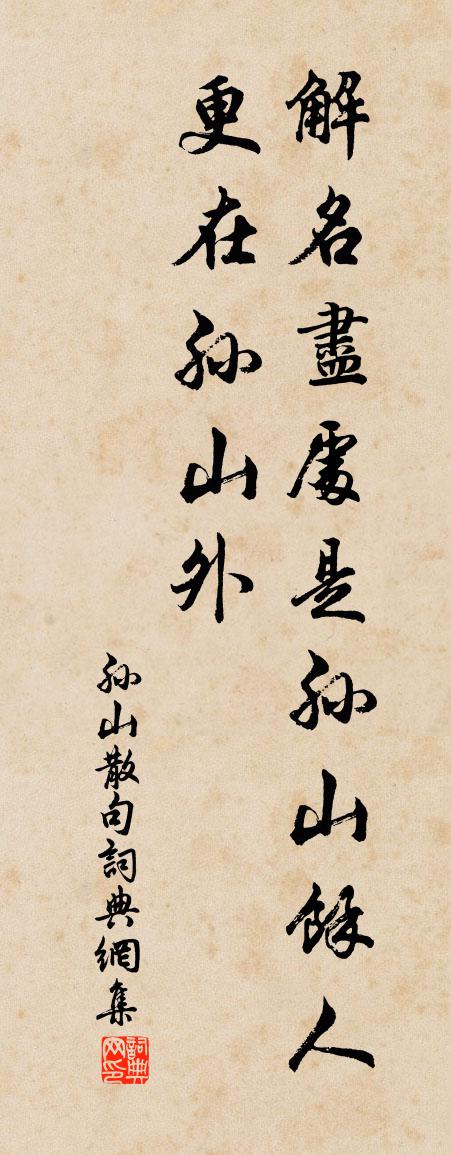 解名盡處是孫山餘人
更在孫山外
孫山散句詞典網集
詞典网印